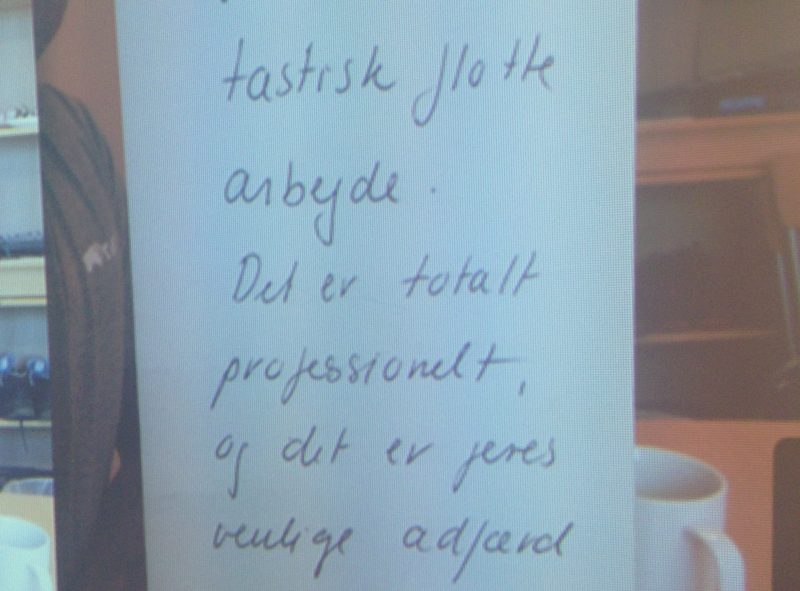 tastisk flotte
arbejde.
Det er totalt
professionelt,
og det er jeres
venlige adfærd